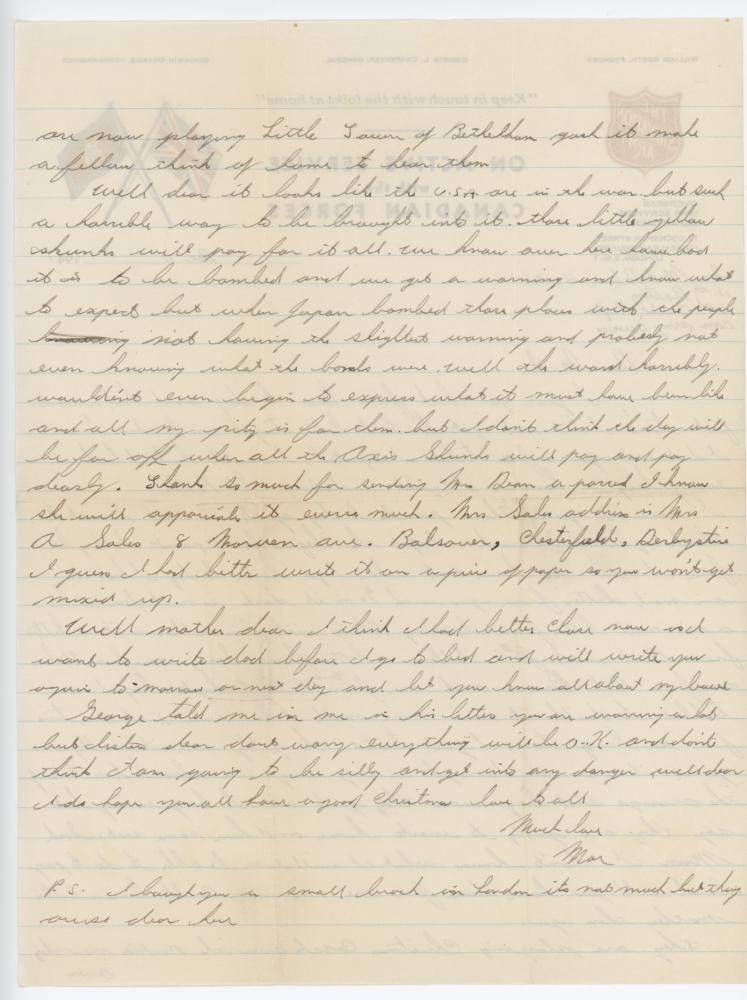 are now playing Little Town of Bethelham gosh it make
a fellow think of home to hear them
Well dear it looks like the U.S.A are in the war. but such
a horrible way to be brought into it. those little yellow
skunks will pay for it all. we know over here how bad
it is to be bombed and we get a warning and know what
to expect but when Japan bombed those places with the people
not having the slightest warning and probely not
even knowing what the bombs were. well the word horrible.
wouldén't even begin to express what it must have been like
and all my pity is for them. but I don't think the day will
be far off when all the Axis Skunks will pay and pay
dearly. Thanks so much for sending Mrs Dean a parcel I know
she will appreciate it ever so much. Mrs Sales address is Mrs
A Sales 8 Morven ave. Balsover, Chesterfield, Derbyshire
I guess I had bettr write it on a piece of paper so you won't get
mixed up.
Well mother dear I think I had better close now as I
want to write dad before I go to bed and will write you
again to-morrow or next day and let you know all about my leave
George told me in me in his letter you are worring a lot
but listen dear dont worry everything will be O.K. and don't
think I am going to be silly and get into any danger well dear
I do hope you all have a good Christmas love to all
Much love
Mar
P.S. I bough you a small broch in London its not much but they
are so dear here